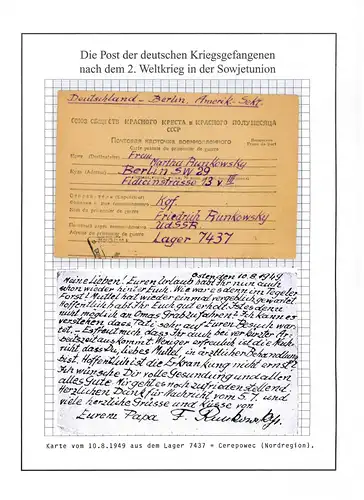 Die Post der deutschen Kriegsgefangenen
nach dem 2. Weltkrieg in der Sowjetunion
Deutschland – Berlin, Amerik. Sekt.
СОЮЗ ОБЩЕСТВ КРАСНОГО КРЕСТА и КРАСНОГО ПОЛУМЕСЯЦА
СССР
Почтовая карточка военнопленного
Carte postale du prisonnier de guerre
Кому (Destinataire) Frau
Martha Runkowsky
Куда (Adresse) Berlin SW 29
Fidicinstrasse 13 v III
Отправитель (Expéditeur) Kgf.
Friedrich Runkowsky
UdSSR
Lager 7437
Osten, den 10.8.1949
Meine Lieben! Euren Urlaub habt Ihr nun auch
schon wieder hinter Euch. Wie war es denn im Tegeler
Forst? Muttel hat wieder einmal vergeblich gewartet.
Hoffentlich habt Ihr Euch gut erholt. Ist es denn
nicht möglich an Omas Grab zu fahren? Ich kann es
verstehen, dass Tati sehr auf Euren Besuch war-
tet. – Erfreut mich dass Ihr auch bei verkürzter Ar-
beitszeit auskommt. Weniger erfreulich ist die Nach-
richt, dass Du, liebes Muttel, in ärztlicher Behandlung
bist. Hoffentlich ist die Erkrankung nicht ernst?
Ich wünsche Dir volle Gesundung und allen
alles Gute. Mir geht es noch zufriedenstellend.
Herzlichen Dank für Nachricht vom 5.7. und
viele herzliche Grüsse und Küsse von
Eurem Papa F. Runkowsky.
Karte vom 10.8.1949 aus dem Lager 7437 = Cerepowec (Nordregion).